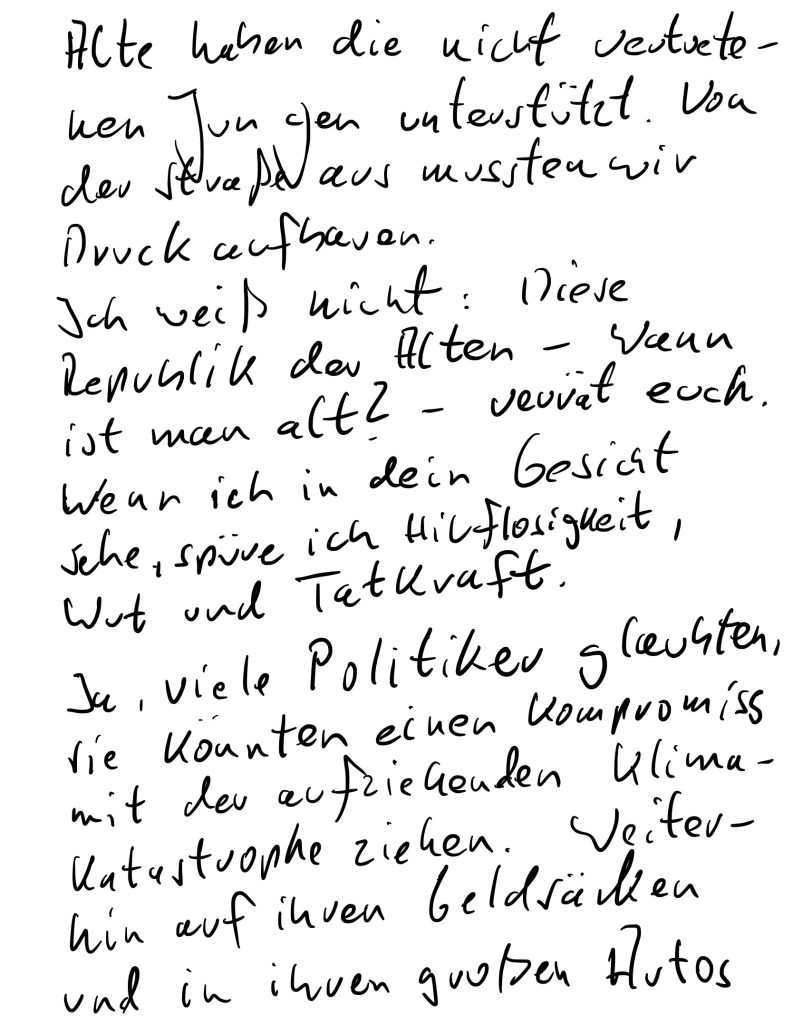 Alte haben die nicht vertrete-
nen Jungen unterstützt. Von
der Straße aus mussten wir
Druck aufbauen.
Ich weiß nicht: Diese
Republik der Alten – Wann
ist man alt? – verrät euch.
Wenn ich in dein Gesicht
sehe, spüre ich Hilflosigkeit,
Wut und Tatkraft.
Ja, viele Politiker glaubten,
sie könnten einen Kompromiss
mit der aufziehenden Klima-
Katastrophe ziehen. Weiter-
hin auf ihren Geldsäcken
und in ihren großen Autos